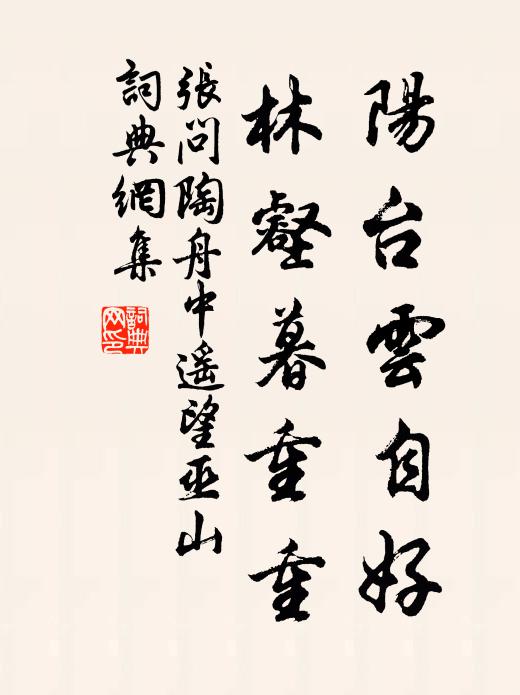 陽台雲自好
林壑暮重重
張問陶舟中遥望巫山
詞典網集
詞典
网印